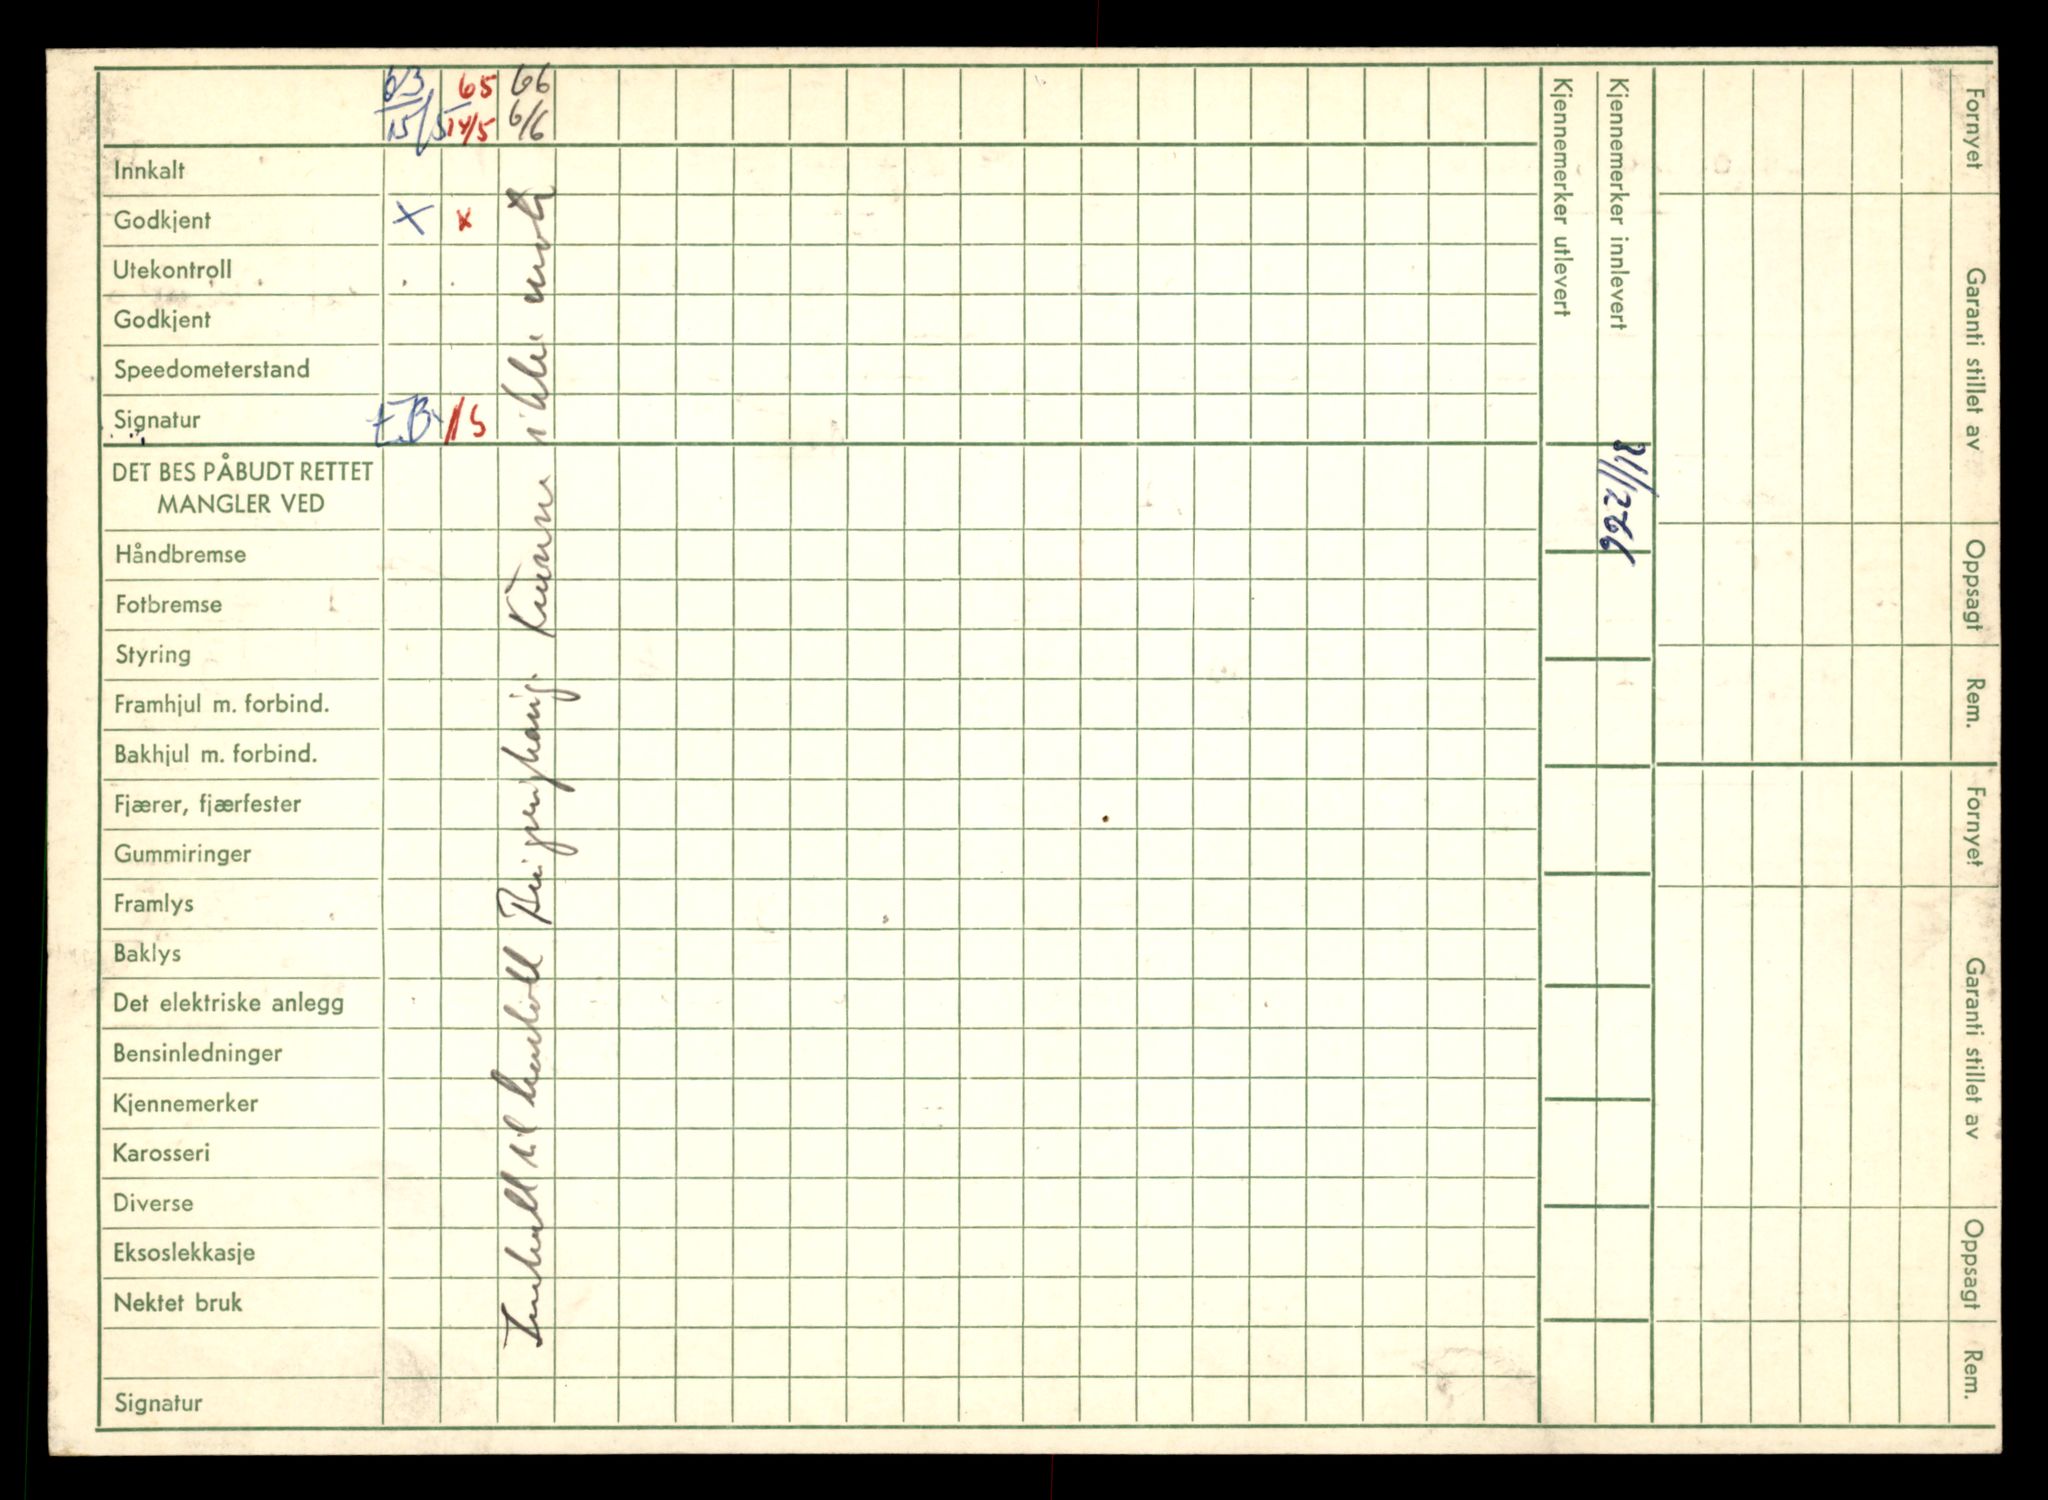 63 65 66
15/5 14/5 6/6
Innkalt
Godkjent X x
Utekontroll
Godkjent
Speedometerstand
Signatur E.B.
DET BES PÅBUDT RETTET
MANGLER VED
Håndbremse
Fotbremse
Styring
Framhjul m. forbind.
Bakhjul m. forbind.
Fjærer, fjærfester
Gummiringer
Framlys
Baklys
Det elektriske anlegg
Bensinledninger
Kjennemerker
Karosseri
Diverse
Eksoslekkasje
Nektet bruk
Signatur
Innkalt til kontroll Kunne ikke møte
Kjennemerker utlevert
Kjennemerker innlevert
Fornyet
Garanti stillet av
Oppsagt
Rem.
Fornyet
Garanti stillet av
Oppsagt
Rem.